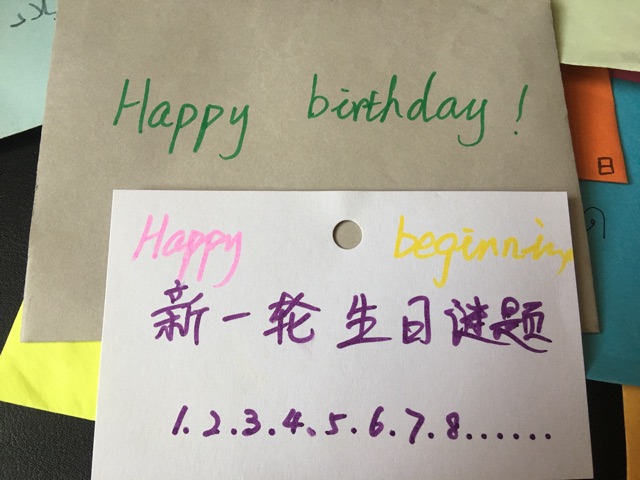 Happy birthday!
日
Happy beginning
新一轮生日谜题
1.2.3.4.5.6.7.8......